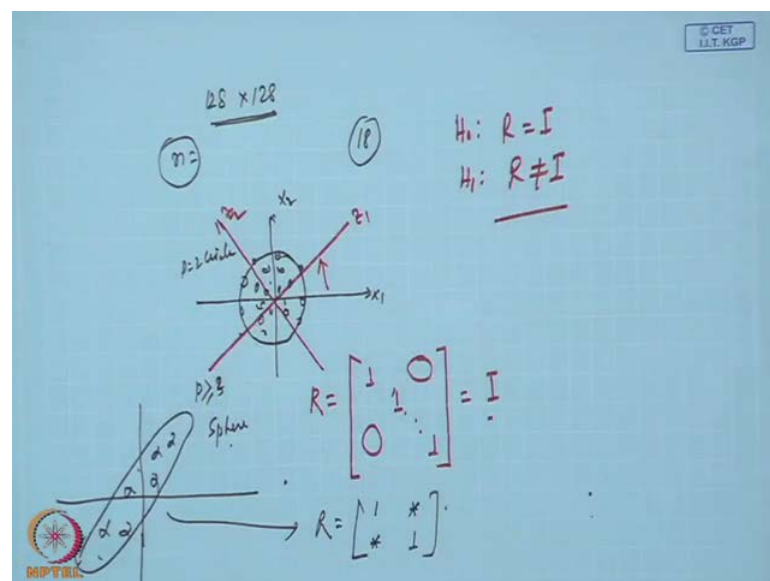 © CET
I.I.T. KGP
128 × 128
n=
18
H₀: R = I
H₁: R ≠ I
x₂
z₁
p=2 circle
x₁
p≥3
Sphere
R = [ 1 0 1 ⋱ 0 1 ] = I
R = [ 1 *
* 1 ]
NPTEL